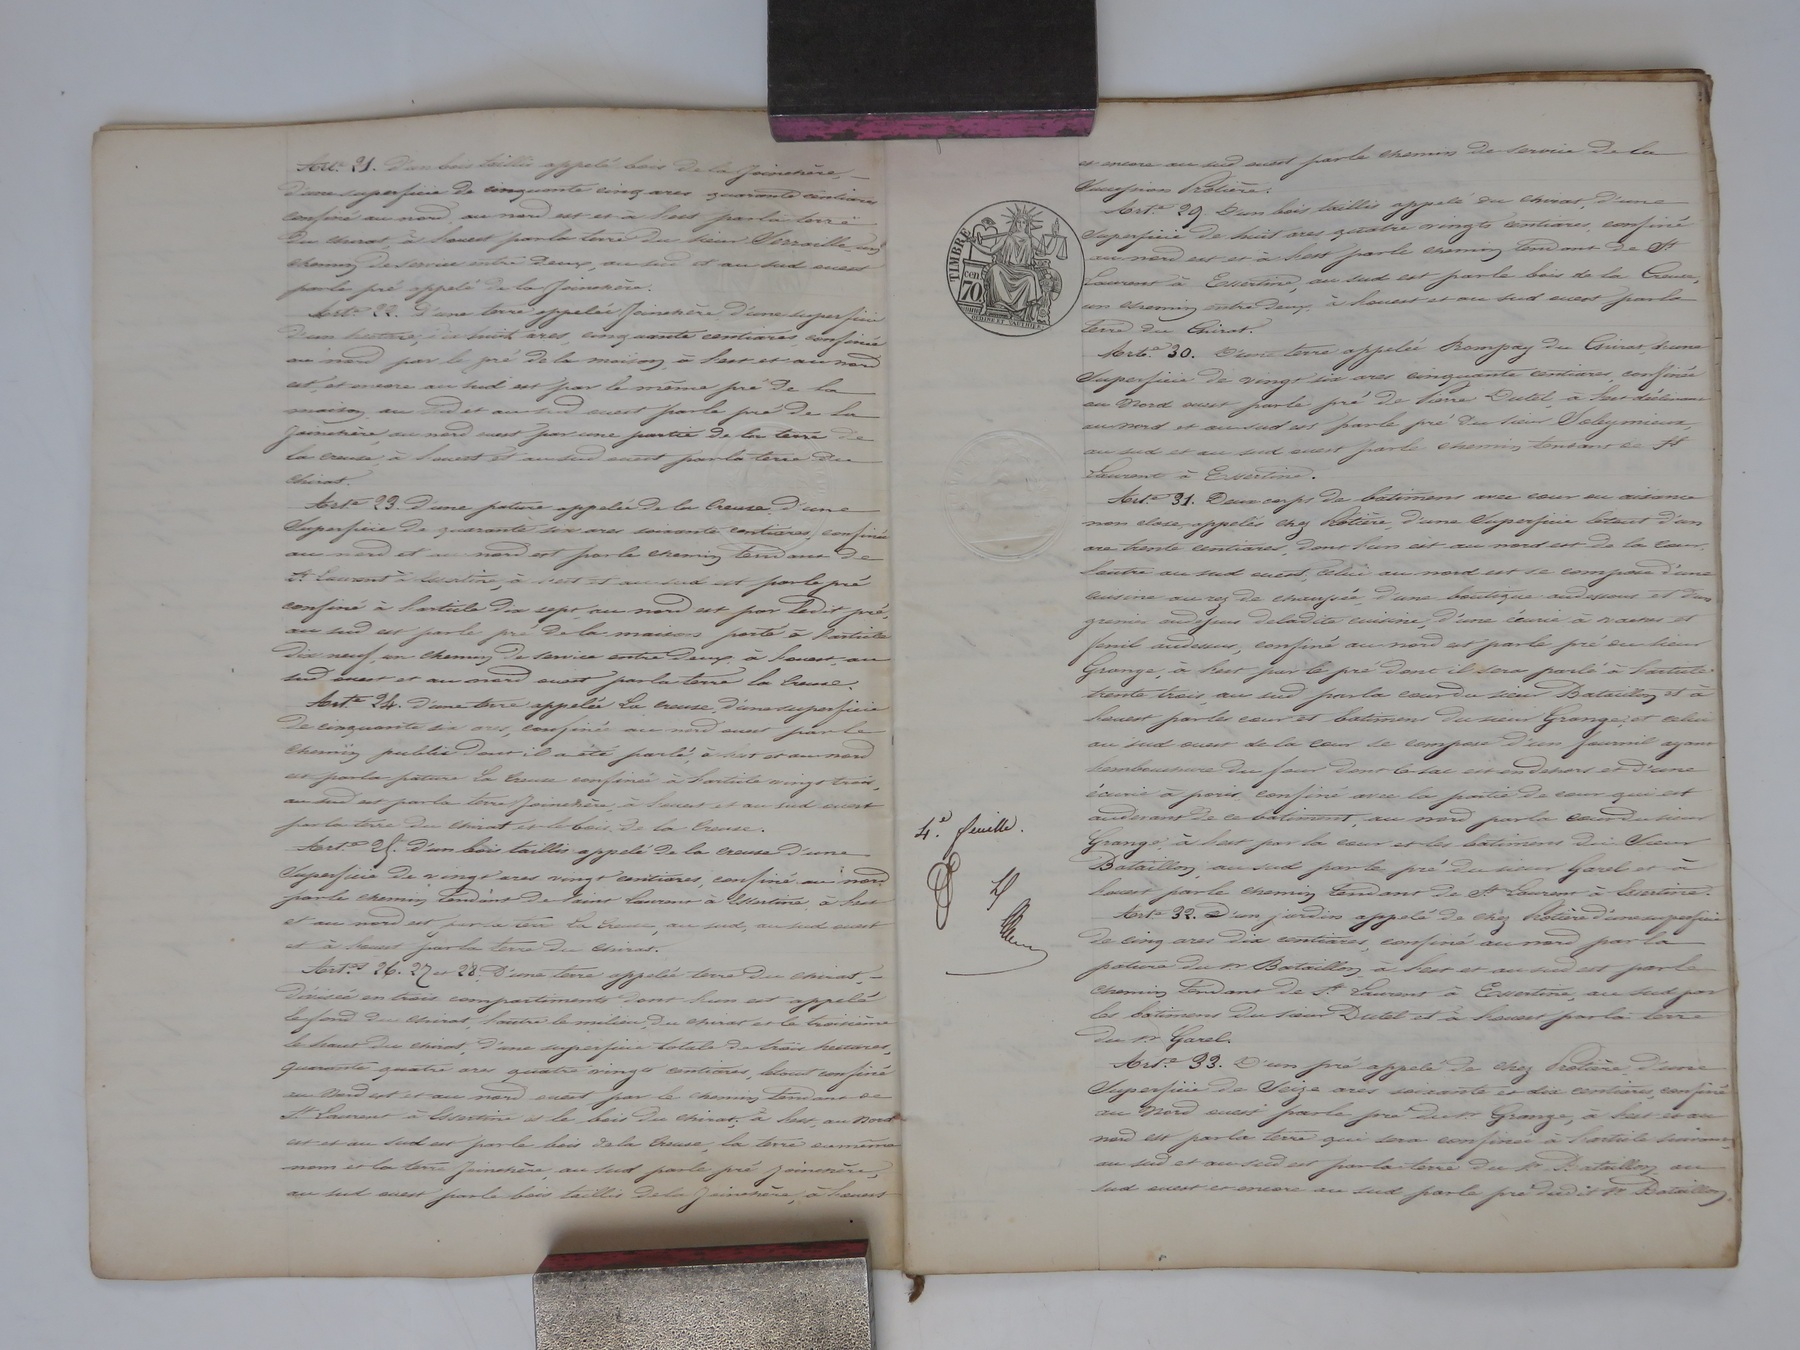 Art.e 21. D'un bois taillis appelé bois de la Joinchère,
d'une superficie de cinquante cinq ares quarante centiares
confiné au nord au nord est et à l'est par la terre
du Chirat, à l'ouest par la terre du sieur un
chemin de service entre deux, au sud et au sud ouest
par le pré appelé de la Joinchère.
Art.e 22. D'une terre appelée Joinchère d'une superficie
d'un hectare, dix huit ares, cinquante centiares, confinée
au nord par le pré de la maison, à l'est et au nord
est, et encore au sud est par le même pré de la
maison, au sud et au sud ouest par le pré de la
Joinchère, au nord ouest par une partie de la terre de
la Creuse, à l'ouest et au sud ouest par la terre du
Chirat.
Art.e 23. D'une pature appelée de la Creuse, d'une
superficie de quarante six ares soixante centiares, confinée
au nord et au nord est par le chemin tendant de
St Laurent à Essertine, à l'est et au sud est par le pré
confiné à l'article dix sept, au nord est par ledit pré,
au sud est par le pré de la maison porté à l'article
dix neuf, un chemin de service entre deux, à l'ouest, au
sud ouest et au nord ouest par la terre la Creuse.
Art.e 24. D'une terre appelée La Creuse, d'une superficie
de cinquante six ares, confinée au nord ouest par le
chemin public dont il a été parlé, à l'est et au nord
est par la pâture la Creuse confinée à l'article vingt trois,
au sud est par la terre Joinchère, à l'ouest et au sud ouest
par la terre du Chirat et le bois de la Creuse.
Art.e 25. D'un bois taillis appelé de la Creuse d'une
superficie de vingt ares vingt centiares, confiné au nord
par le chemin tendant de Saint Laurent à Essertine, à l'est
et au nord est par la terre la Creuse, au sud, au sud ouest
et à l'ouest par la terre du Chirat.
Art.s 26. 27 et 28. D'une terre appelée terre du Chirat,
divisée en trois compartiments dont l'un est appelé
le fond du Chirat, l'autre le milieu du Chirat et le troisième
le haut du Chirat, d'une superficie totale de trois hectares,
quarante quatre ares quatre vingts centiares, le tout confiné
au nord est et au nord ouest par le chemin tendant de
St Laurent à Essertine et le bois du Chirat; à l'est, au nord
est et au sud est par le bois de la Creuse, la terre du même
nom et la terre Joinchère, au sud par le pré Joinchère,
au sud ouest par le bois taillis de la Joinchère, à l'ouest
et encore au sud ouest par le chemin de service de la
succession Rotière.
Art.e 29. D'un bois taillis appelé du Chirat, d'une
superficie de huit ares quatre vingts centiares, confiné
au nord est et à l'est par le chemin tendant de St
Laurent à Essertine, au sud est par le bois de la Creuse,
un chemin entre deux, à l'ouest et au sud ouest par la
terre du Chirat.
Art.e 30. D'une terre appelée Rompay du Chirat, d'une
superficie de vingt six ares cinquante centiares, confinée
au nord ouest par le pré de Pierre Dutel, à l'est
au nord et au sud est par le pré du sieur Soleymieux,
au sud et au sud ouest par le chemin tendant de St
Laurent à Essertine.
Art.e 31. Deux corps de batimens avec cour ou aisance
non close, appelés chez Rotière, d'une superficie totale d'un
are trente centiares, dont l'un est au nord est de la cour,
l'autre au sud ouest, celui au nord est se compose d'une
cuisine au rez de chaussée, d'une boutique audessous et d'un
grenier audessus de ladite cuisine, d'une écurie à vaches et
fenil audessus, confiné au nord est par le pré du sieur
Grange, à l'est par le pré dont il sera parlé à l'article
trente trois, au sud par la cour du sieur Bataillon et à
l'ouest par les cour et batimens du sieur Grange; et celui
au sud ouest de la cour se compose d'un fournil ayant
l'embouchure du four dont le sac est en dehors et d'une
écurie à porcs, confiné avec la partie de cour qui est
audevant de ce batiment, au nord par la cour du sieur
Grange; à l'est par la cour et les bâtimens du Sieur
Bataillon, au sud par le pré du sieur Garel et à
l'ouest par le chemin tendant de St Laurent à Essertine.
Art.e 32. D'un jardin appelé de chez Rotière d'une superficie
de cinq ares dix centiares, confiné au nord par la
pature du sr Bataillon, à l'est et au sud est par le
chemin tendant de St Laurent à Essertine, au sud par
les batimens du sieur Dutel et à l'ouest par la terre
du sr Garel.
Art.e 33. D'un pré appelé de chez Rotière, d'une
superficie de seize ares soixante et dix centiares, confiné
au nord ouest par le pré du sr Grange, à l'est et au
nord est par la terre qui sera confinée à l'article suivant,
au sud et au sud est par la terre du sr Bataillon, au
sud ouest et encore au sud par le pré dudit sr Bataillon,
TIMBRE
70 cen
4.e feuille.